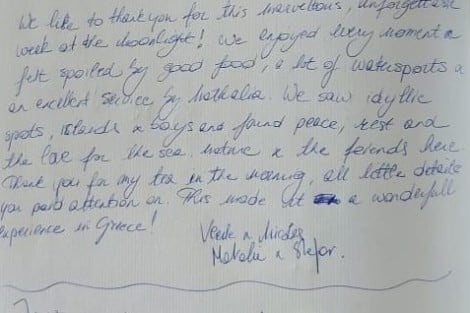 We like to thank you for this marvellous, unforgettable
week at the Moonlight! We enjoyed every moment n
felt spoiled by good food, a lot of watersports n
an excellent service by Nathalia. We saw idyllic
spots, islands n bays and found peace, rest and
the love for the sea, nature n the feriends here.
Thank you for my tea in the morning, all little details
you paid attention on. This made it a wonderfull
experience in Greece!
n
n